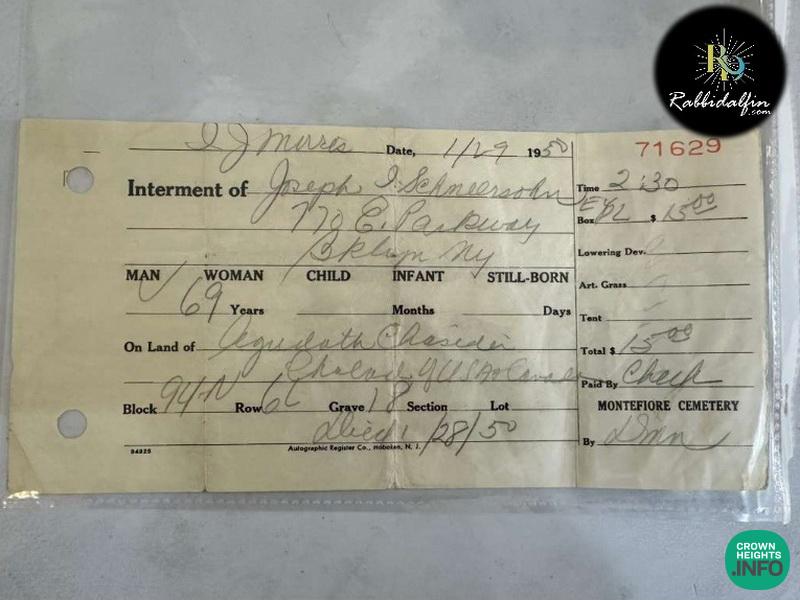 RD
Rabbidalfin
.com
I J Morris Date, 1/29 1950 71629
Interment of Joseph I. Schneersohn
770 E. Parkway
Bklyn NY
MAN WOMAN CHILD INFANT STILL-BORN
69 Years Months Days
On Land of Agudath Chasidei
Chabad of USA & Canada
Block 94-N Row 6L Grave 18 Section Lot
Died 1/28/50
94925 Autographic Register Co., Hoboken, N. J.
Time 2:30
Box $ 15.00
Lowering Dev.
Art. Grass
Tent
Total $ 15.00
Paid By Check
MONTEFIORE CEMETERY
By
CROWN
HEIGHTS
.INFO